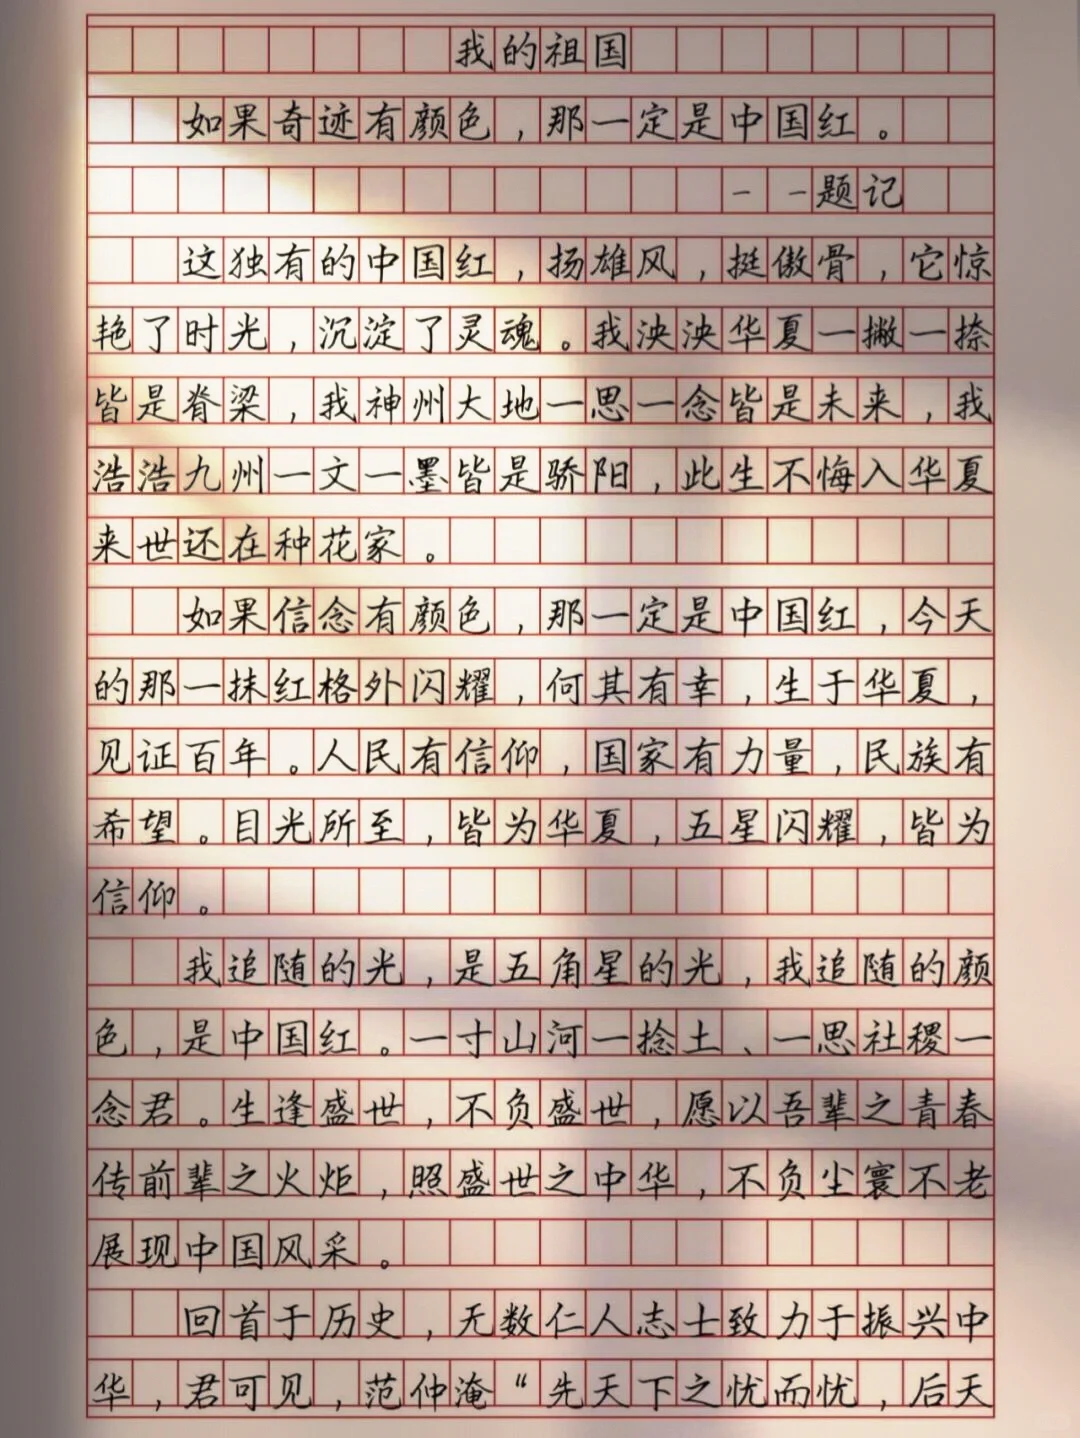 我的祖国
如果奇迹有颜色，那一定是中国红。
－－题记
这独有的中国红，扬雄风，挺傲骨，它惊
艳了时光，沉淀了灵魂。我泱泱华夏一撇一捺
皆是脊梁，我神州大地一思一念皆是未来，我
浩浩九州一文一墨皆是骄阳，此生不悔入华夏
来世还在种花家。
如果信念有颜色，那一定是中国红，今天
的那一抹红格外闪耀，何其有幸，生于华夏，
见证百年。人民有信仰，国家有力量，民族有
希望。目光所至，皆为华夏，五星闪耀，皆为
信仰。
我追随的光，是五角星的光，我追随的颜
色，是中国红。一寸山河一捻土、一思社稷一
念君。生逢盛世，不负盛世，愿以吾辈之青春
传前辈之火炬，照盛世之中华，不负尘寰不老
展现中国风采。
回首于历史，无数仁人志士致力于振兴中
华，君可见，范仲淹“先天下之忧而忧，后天